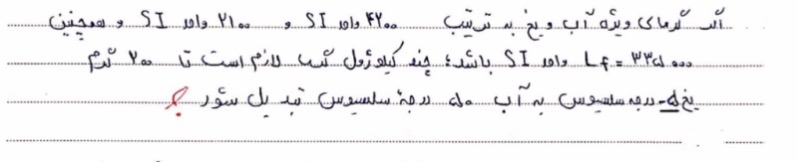 اگر گرمای ویژه آب و یخ به ترتیب ۴۲۰۰ واحد SI و ۲۱۰۰ واحد SI و همچنین
Lf = ۳۳۵۰۰۰ واحد SI باشد؛ چند کیلوژول گرما لازم است تا ۲۰۰ گرم
یخ ۵- درجه سلسیوس به آب ۵۰ درجهٔ سلسیوس تبدیل شود ؟